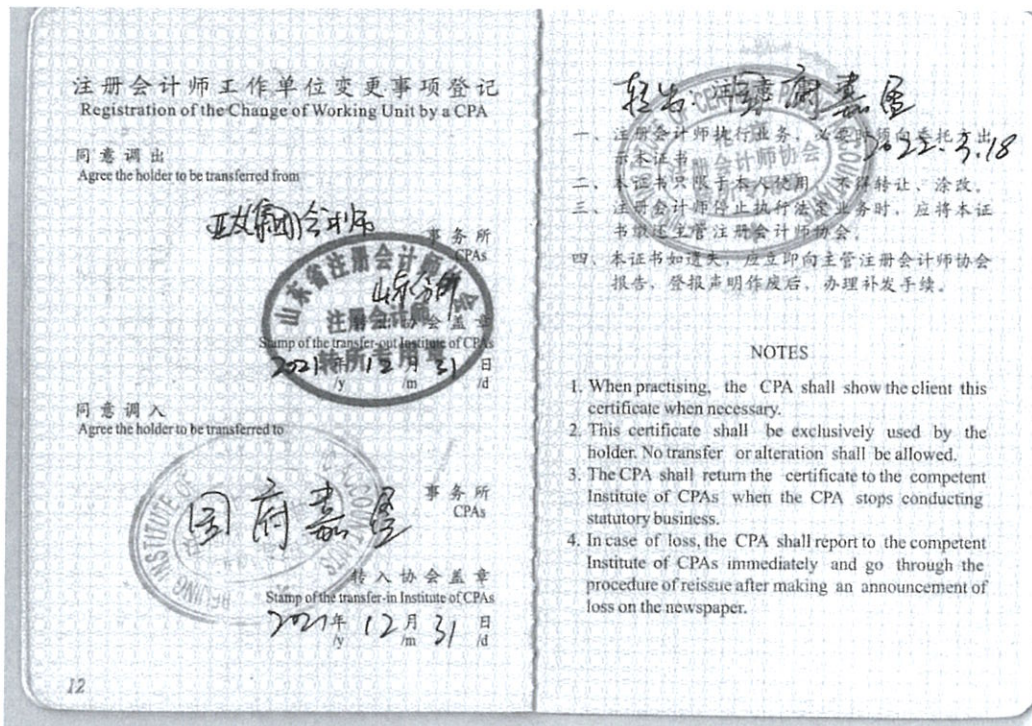 注册会计师工作单位变更事项登记
Registration of the Change of Working Unit by a CPA
同意调出
Agree the holder to be transferred from
会计师
事务所
CPAs
山东分所
山东省注册会计师协会
注册会计师
转所专用章
协会盖章
Stamp of the transfer-out Institute of CPAs
2021年 12月 31日
/y /m /d
同意调入
Agree the holder to be transferred to
国府嘉盈
事务所
CPAs
BEIJING INSTITUTE OF
ACCOUNTANTS
转入协会盖章
Stamp of the transfer-in Institute of CPAs
2021年 12月 31日
/y /m /d
12
府嘉盈
2022.3.18
一、注册会计师执行业务，必要时须向委托方出
示本证书。
二、本证书只限于本人使用，不得转让、涂改。
三、注册会计师停止执行法定业务时，应将本证
书缴还主管注册会计师协会。
四、本证书如遗失，应立即向主管注册会计师协会
报告，登报声明作废后，办理补发手续。
会计师协会
NOTES
1. When practising, the CPA shall show the client this
certificate when necessary.
2. This certificate shall be exclusively used by the
holder. No transfer or alteration shall be allowed.
3. The CPA shall return the certificate to the competent
Institute of CPAs when the CPA stops conducting
statutory business.
4. In case of loss, the CPA shall report to the competent
Institute of CPAs immediately and go through the
procedure of reissue after making an announcement of
loss on the newspaper.